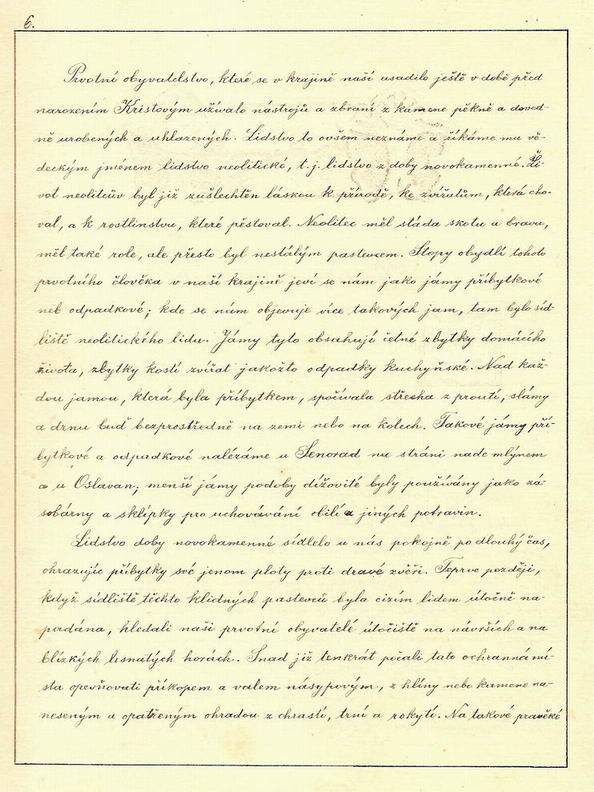 6.
Prvotní obyvatelstvo, které se v krajině naší usadilo ještě v době před
narozením Kristovým užívalo nástrojů a zbraní z kamene pěkně a doved-
ně urobených a uhlazených. Lidstvo to ovšem neznámé a říkáme mu vě-
deckým jménem lidstvo neolitické, t. j. lidstvo z doby novokamenné. Ži-
vot neolitcův byl již zušlechtěn láskou k přírodě, ke zvířatům, která cho-
val, a k rostlinstvu, které pěstoval. Neolitec měl stáda skotu a bravu,
měl také role, ale přesto byl nestálým pastevcem. Stopy obydlí tohoto
prvotního člověka v naší krajině jeví se nám jako jámy příbytkové
neb odpadkové; kde se nám objevuje více takových jam, tam bylo síd-
liště neolitického lidu. Jámy tyto obsahují četné zbytky domácího
života, zbytky kostí zvířat jakožto odpadky kuchyňské. Nad kaž-
dou jamou, která byla příbytkem, spočívala střecha z proutí, slámy
a drnu buď bezprostředně na zemi nebo na kolech. Takové jámy pří-
bytkové a odpadkové nalézáme u Senorad na stráni nade mlýnem
a u Oslavan; menší jámy podoby dížovité byly používány jako zá-
sobárny a sklípky pro uchovávání obilí a jiných potravin.
Lidstvo doby novokamenné sídlelo u nás pokojně po dlouhý čas,
ohrazujíc příbytky své jenom ploty proti dravé zvěři. Teprve později,
když sídliště těchto klidných pastevců byla cizím lidem útočně na-
padána, hledali naši prvotní obyvatelé útočiště na návrších a na
blízkých lesnatých horách. Snad již tenkrát počali tato ochranná mí-
sta opevňovati příkopem a valem násypovým, z hlíny nebo kamene na-
neseným a opatřeným ohradou z chrastí, trní a rokytí. Na takové pravěké